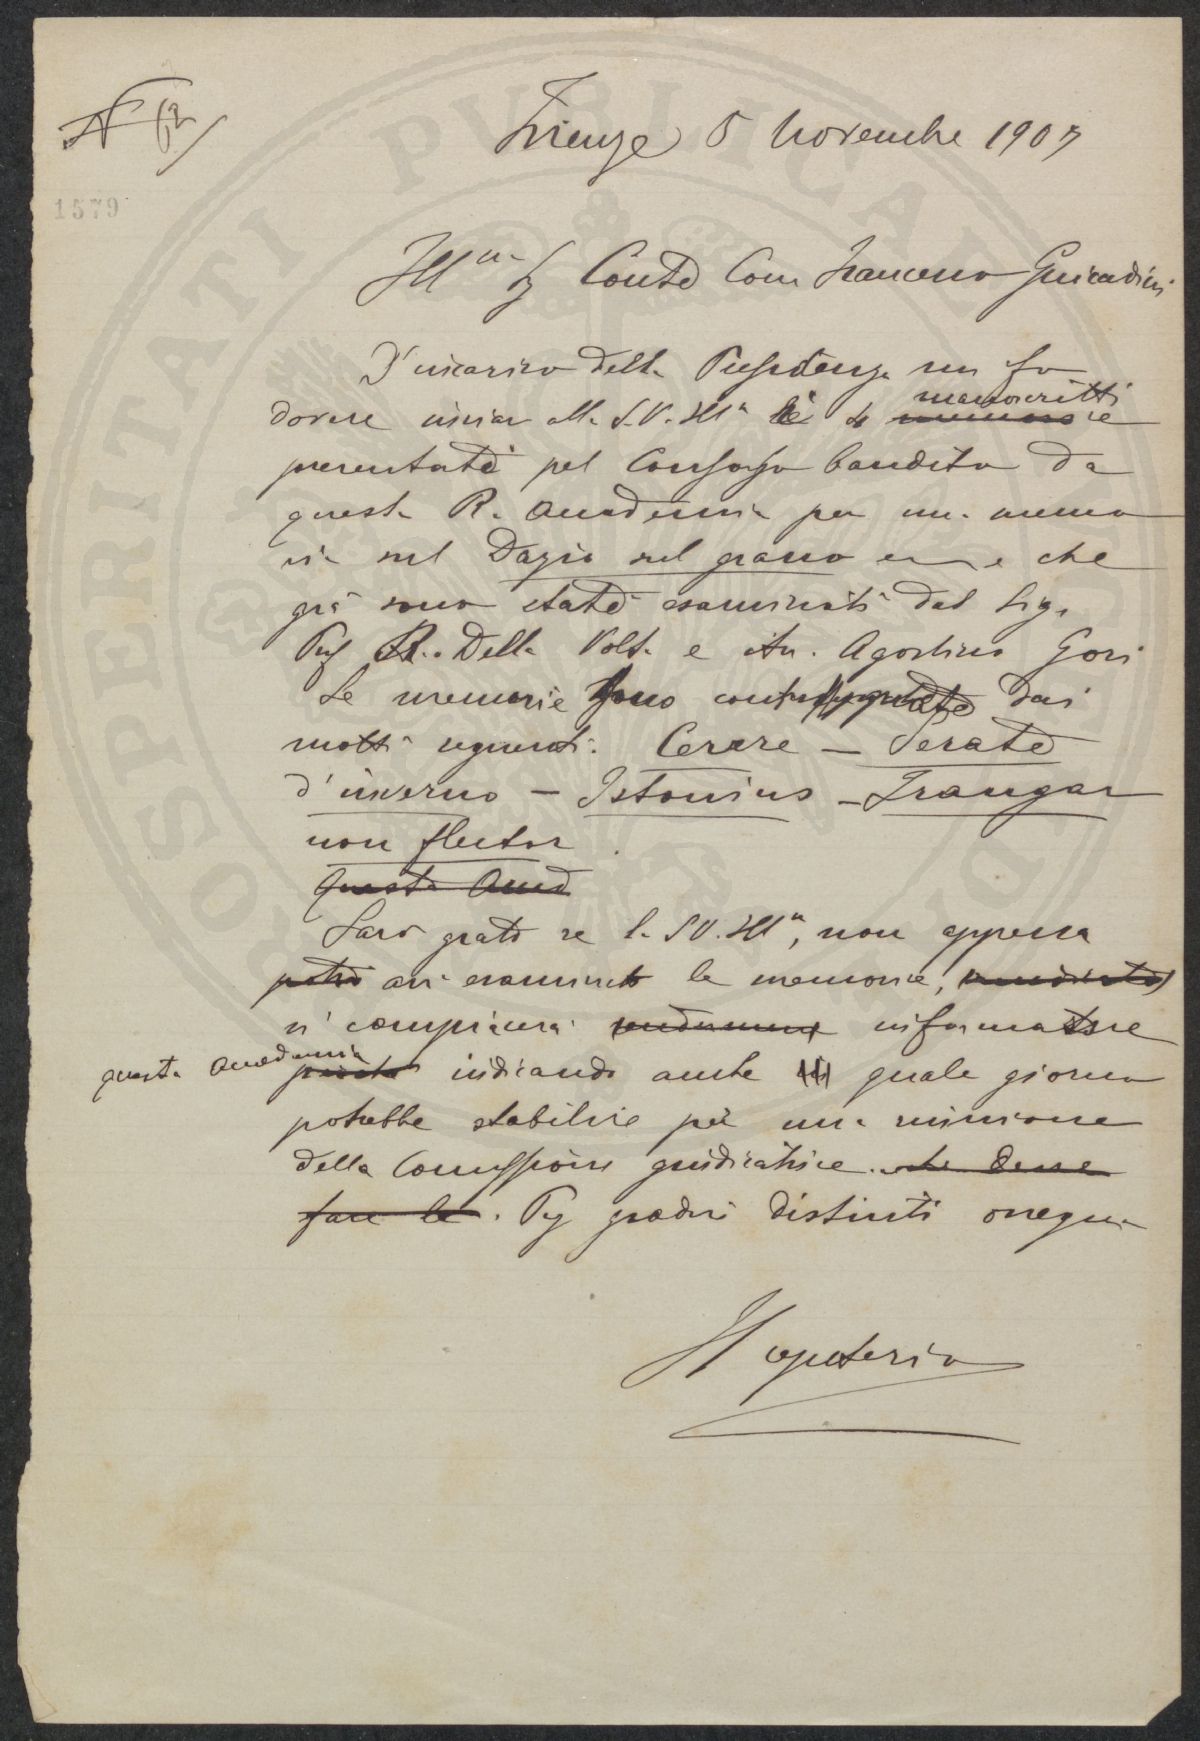 1579
Firenze 5 Novembre 1907
Ill.mo Sig Conte Com Francesco Guicciardini
D'incarico della Presidenza mi fo
manoscritti
dovere inviar alla S.V. Illa le 4 memorie
presentate pel Consorso bandito da
questa R. Accademia per una memo
ria sul Dazio sul grano e che
già sono state esaminati dal Sig.
Prof R. Della Volta e Avv. Agostino Gori
Le memorie sono contrassegnate dai
motti seguenti: Cerere – Serate
d'inverno – Istonius – Frangar
non flector
Questa Accad
Sarò grato se la S.V. Illa, non appena
potrà avrà esaminato le memorie,
si compiacerà informare
questa Accademia
indicando anche quale giorno
potrebbe stabilire per una riunione
della Commissione giudicatrice. che deve
fare la. Pg gradire distinti ossequi
Il segretario